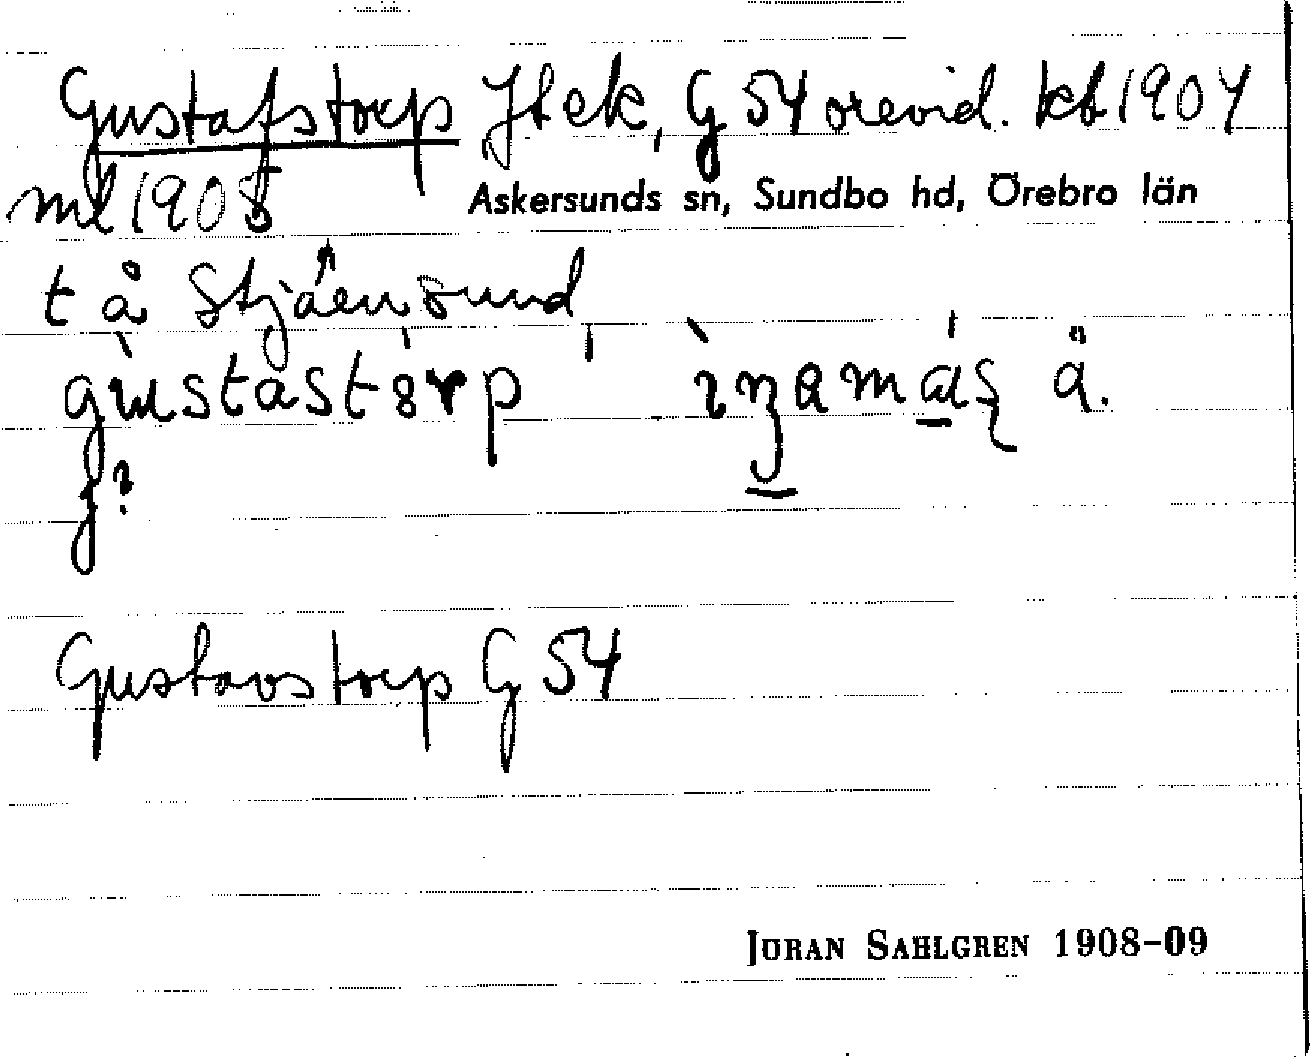 Gustafstorp Jtek, G 54 orevid. kbl 1904
ml 1905
Askersunds sn, Sundbo hd, Örebro län
t å Stjärnsund
gustastorp
g?
Gustavstorp G 54
JÖRAN SAHLGREN 1908-09